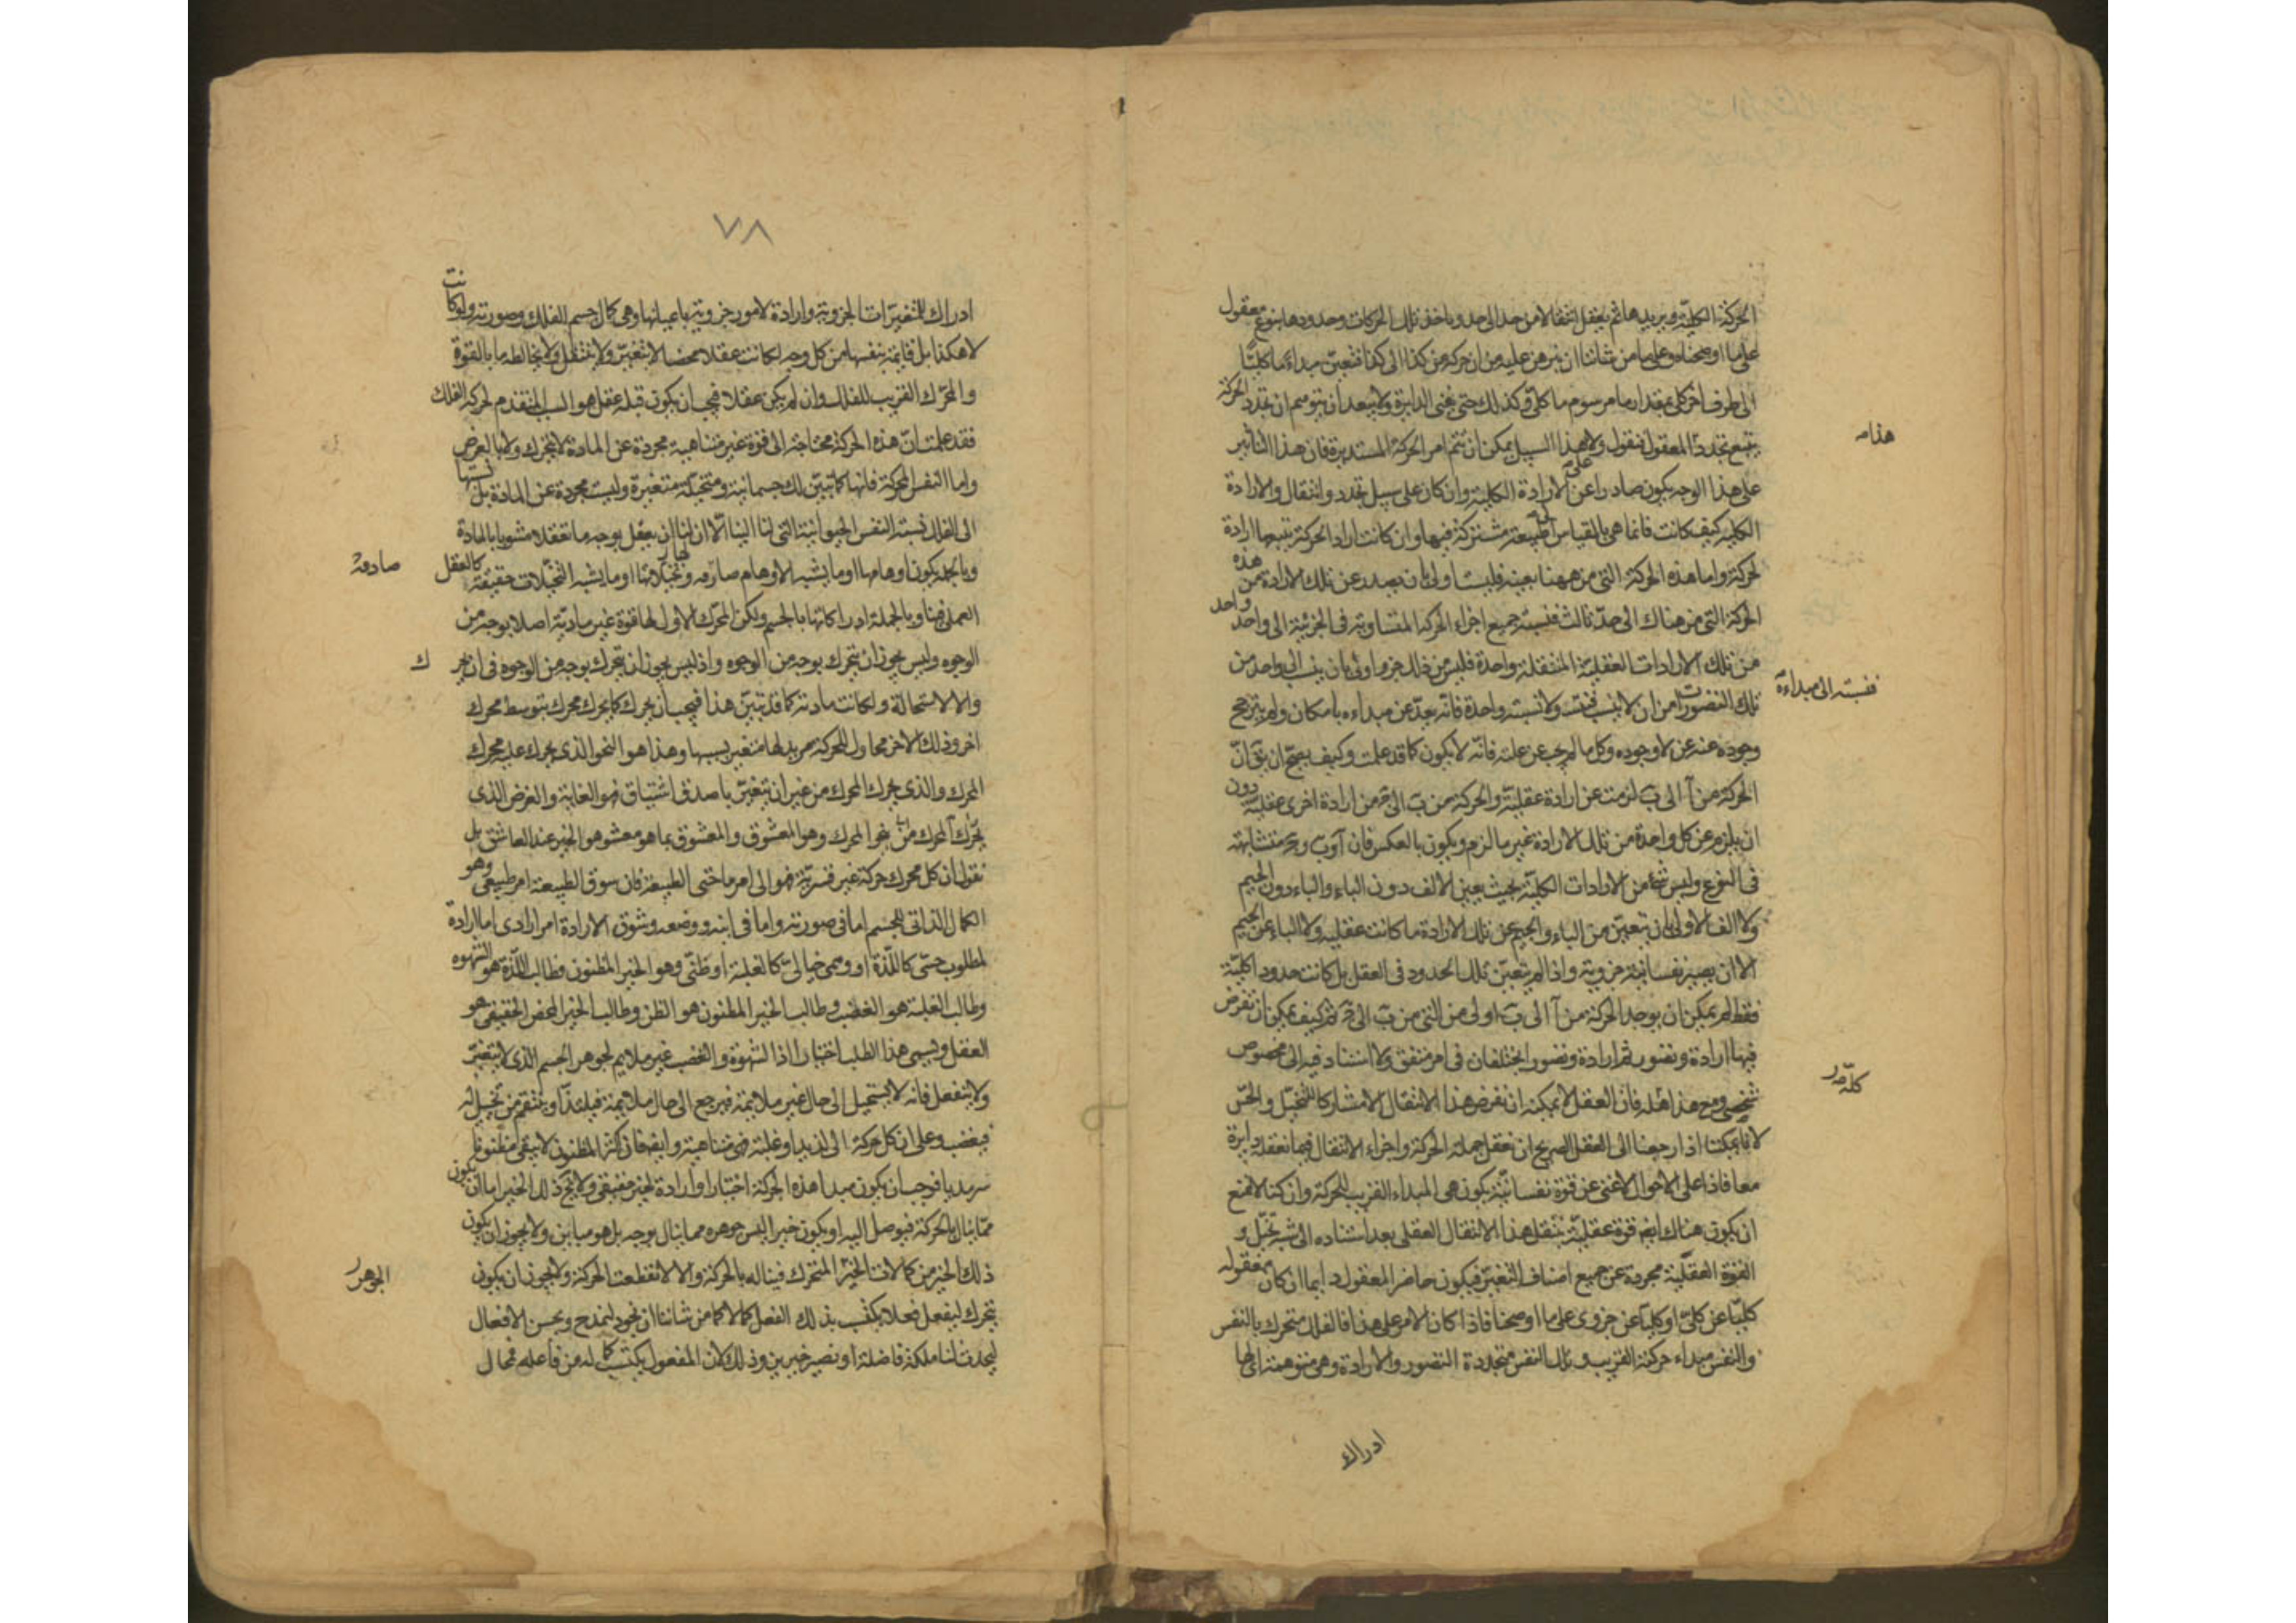 الحركة الكلية ويريدها ثم يعقل انتقالا من حد الى حد وياخذ تلك الحركات وحدودها بنوع معقول
على ما اوضحناه وعلى ما من شاننا ان نبرهن عليه من ان حركة من كذا الى كذا فتعين مبداء ما كليا
الى طرف اخر كلى بمقدار ما مرسوم ما كلى وكذلك حتى يفنى الدايرة ولا يبعد ان يتوهم ان تجدد الحركة
يتبع تجدد المعقول فنقول ولا هذا السبيل يمكن ان يتم امر الحركة المستديرة فان هذا التاثير
هذا
على هذا الوجه يكون صادرا عن الارادة الكلية وان كان على سبيل تجدد وانتقال والارادة
الكلية كيف كانت فانما هى بالقياس الى طبيعة مشتركة فيها وان كانت ارادة لحركة يتبعها ارادة
لحركة واما هذه الحركة التى من ههنا بعينه فليست اولى بان يصدر عن تلك الارادة من هذه
الحركة التى من هناك الى حد ثالث فنسبة جميع اجزاء الحركة المتساوية فى الجزئية الى واحد واحد
من تلك الارادات العقلية المنتقلة واحدة فليس من ذلك جزء اولى بان ينسب الى واحد من
تلك التصورات من ان لا ينسب فنسبته ولا نسبته واحدة فانه بعد عن مبداءه بامكان ولم يترجح
فنسبته الى مبداءه
وجوده عنه عن لا وجوده وكل ما لم يجب عن علته فانه لا يكون كما قد علمت وكيف يصح ان يق ان
الحركة من آ الى ب لزمت عن ارادة عقلية والحركة من ب الى ج من ارادة اخرى عقلية دون
ان يلزم عن كل واحدة من تلك الارادة غير ما لزم ويكون بالعكس فان آ وب وج متشابهة
فى النوع وليس شئ من الارادات الكلية بحيث يعين الالف دون الباء والباء دون الجيم
ولا الالف الاولى بان تتعين من الباء والجيم عن تلك الارادة ما كانت عقلية ولا الباء عن الجيم
الا ان يصير نفسانية جزوية واذا لم تتعين تلك الحدود فى العقل بل كانت حدودا كلية
فقط لم يمكن ان يوجد الحركة من آ الى ب اولى من التى من ب الى ج ثم كيف يمكن ان نفرض
فيها ارادة وتصور ثم ارادة وتصور يختلفان فى امر متفق ولا استناد فيه الى مخصوص
شخصى ومع هذا كله فان العقل لا يمكنه ان نفرض هذا الانتقال الا مشاركا للتخيل والحس
كله
لانا يمكننا اذا رجعنا الى العقل الصريح ان نعقل جملة الحركة واجزاء الانتقال فيما نعقله دايرة
معا فاذا على الاحوال لا غنى عن قوة نفسانية يكون هى المبداء القريب للحركة وان كنا لا نمنع
ان يكون هناك ايض قوة عقلية تنتقل هذا الانتقال العقلى بعد استناده الى شبه تخيل و
القوة العقلية مجردة عن جميع اصناف التغير فيكون حاضر المعقول دايما ان كان معقوله
كليا عن كلى او كليا عن جزوى على ما اوضحنا فاذا كان الامر على هذا فالفلك متحرك بالنفس
والنفس مبداء حركته القريب وتلك النفس متجددة التصور والارادة وهى متوهمة اى لها
ادراك
٧٨
ادراك للمتغيرات الجزوية وارادة لامور جزوية باعيانها وهى كمال جسم الفلك وصورته ولو كانت
لا هكذا بل قايمة بنفسها من كل وجه لكانت عقلا محضا لا يتغير ولا ينتقل ولا يخالطه ما بالقوة
والمحرك القريب للفلك وان لم يكن عقلا فيجب ان يكون قبله عقل هو السبب المتقدم لحركة الفلك
فقد علمت ان هذه الحركة محتاجة الى قوة غير متناهية مجردة عن المادة لا يتحرك ولا بالعرض
واما النفس المحركة فانها كما تبين لك جسمانية ومتخيلة متغيرة وليست مجردة عن المادة بل نسبتها
الى الفلك نسبة النفس الحيوانية التى لنا الينا الا ان لها ان يعقل بوجه ما تعقلا مشوبا بالمادة
وبالجملة يكون اوهامها او ما يشبه الاوهام صادقه وتخيلاتها او ما يشبه التخيلات حقيقة كالعقل
صادقة
العملى فينا وبالجملة ادراكاتها بالجسم ولكن المحرك الاول لها قوة غير مادية اصلا بوجه من
الوجوه وليس يجوز ان يتحرك بوجه من الوجوه واذ ليس يجوز ان يتحرك بوجه من الوجوه فى ان يحر
ك
والا لاستحالة ولكانت مادته كما قد تبين هذا فيجب ان يحرك كما يحرك محرك بتوسط محرك
اخر وذلك الاخر محاول للحركة مريد لها متغير بسببها وهذا هو النحو الذى يحرك عليه محرك
المحرك والذى يحرك المحرك من غير ان يتغير باصدف اشتياق فهو الغاية والغرض الذى
يحرك المحرك من نحو المحرك وهو المعشوق والمعشوق بما هو معشوق هو الخير عند العاشق بل
نقول ان كل محرك حركة غير قسرية فهو الى امر ما حتى الطبيعة فان سوق الطبيعة امر طبيعى وهو
الكمال الذاتى للجسم اما فى صورته واما فى اينه ووضعه وشوق الارادة امر ارادى اما ارادة
لمطلوب حسى كاللذة او وهمى خيالى كالغلبة او ظنى وهو الخير المظنون فطالب اللذة هو الشهوه
وطالب الغلبة هو الغضب وطالب الخير المظنون هو الظن وطالب الخير المحض الحقيقى هو
العقل ويسمى هذا الطلب اختيارا اذا الشهوة والغضب غير ملايم لجوهر الجسم الذى لا يتغير
ولا ينفعل فانه لا يستحيل الى حال غير ملايمة فيرجع الى حال ملايمة فيلتذ او ينتقم من تخيل له
فيغضب وعلى ان كل حركة الى لذيذ او غلبة فهى متناهية وايض فان اكثر المظنون لا يبقى مظنونا
سرمديا فوجب ان يكون مبدا هذه الحركة اختيارا وارادة لخير حقيقى ولا يخ ذلك الخير اما ان يكون
مما ينال بالحركة فيوصل اليه او يكون خيرا ليس جوهره مما ينال بوجه بل هو مباين ولا يجوز ان يكون
ذلك الخير من كمالات الخير المتحرك فيناله بالحركة والا لانقطعت الحركة ولا يجوز ان يكون
الجوهر
يتحرك ليفعل فعلا يكتسب بذلك الفعل كمالا كما من شاننا ان نجود لنمدح ونحسن الافعال
ليحدث لنا ملكة فاضلة او نصير خيرين وذلك لان المفعول يكتسب كماله من فاعله فمحال